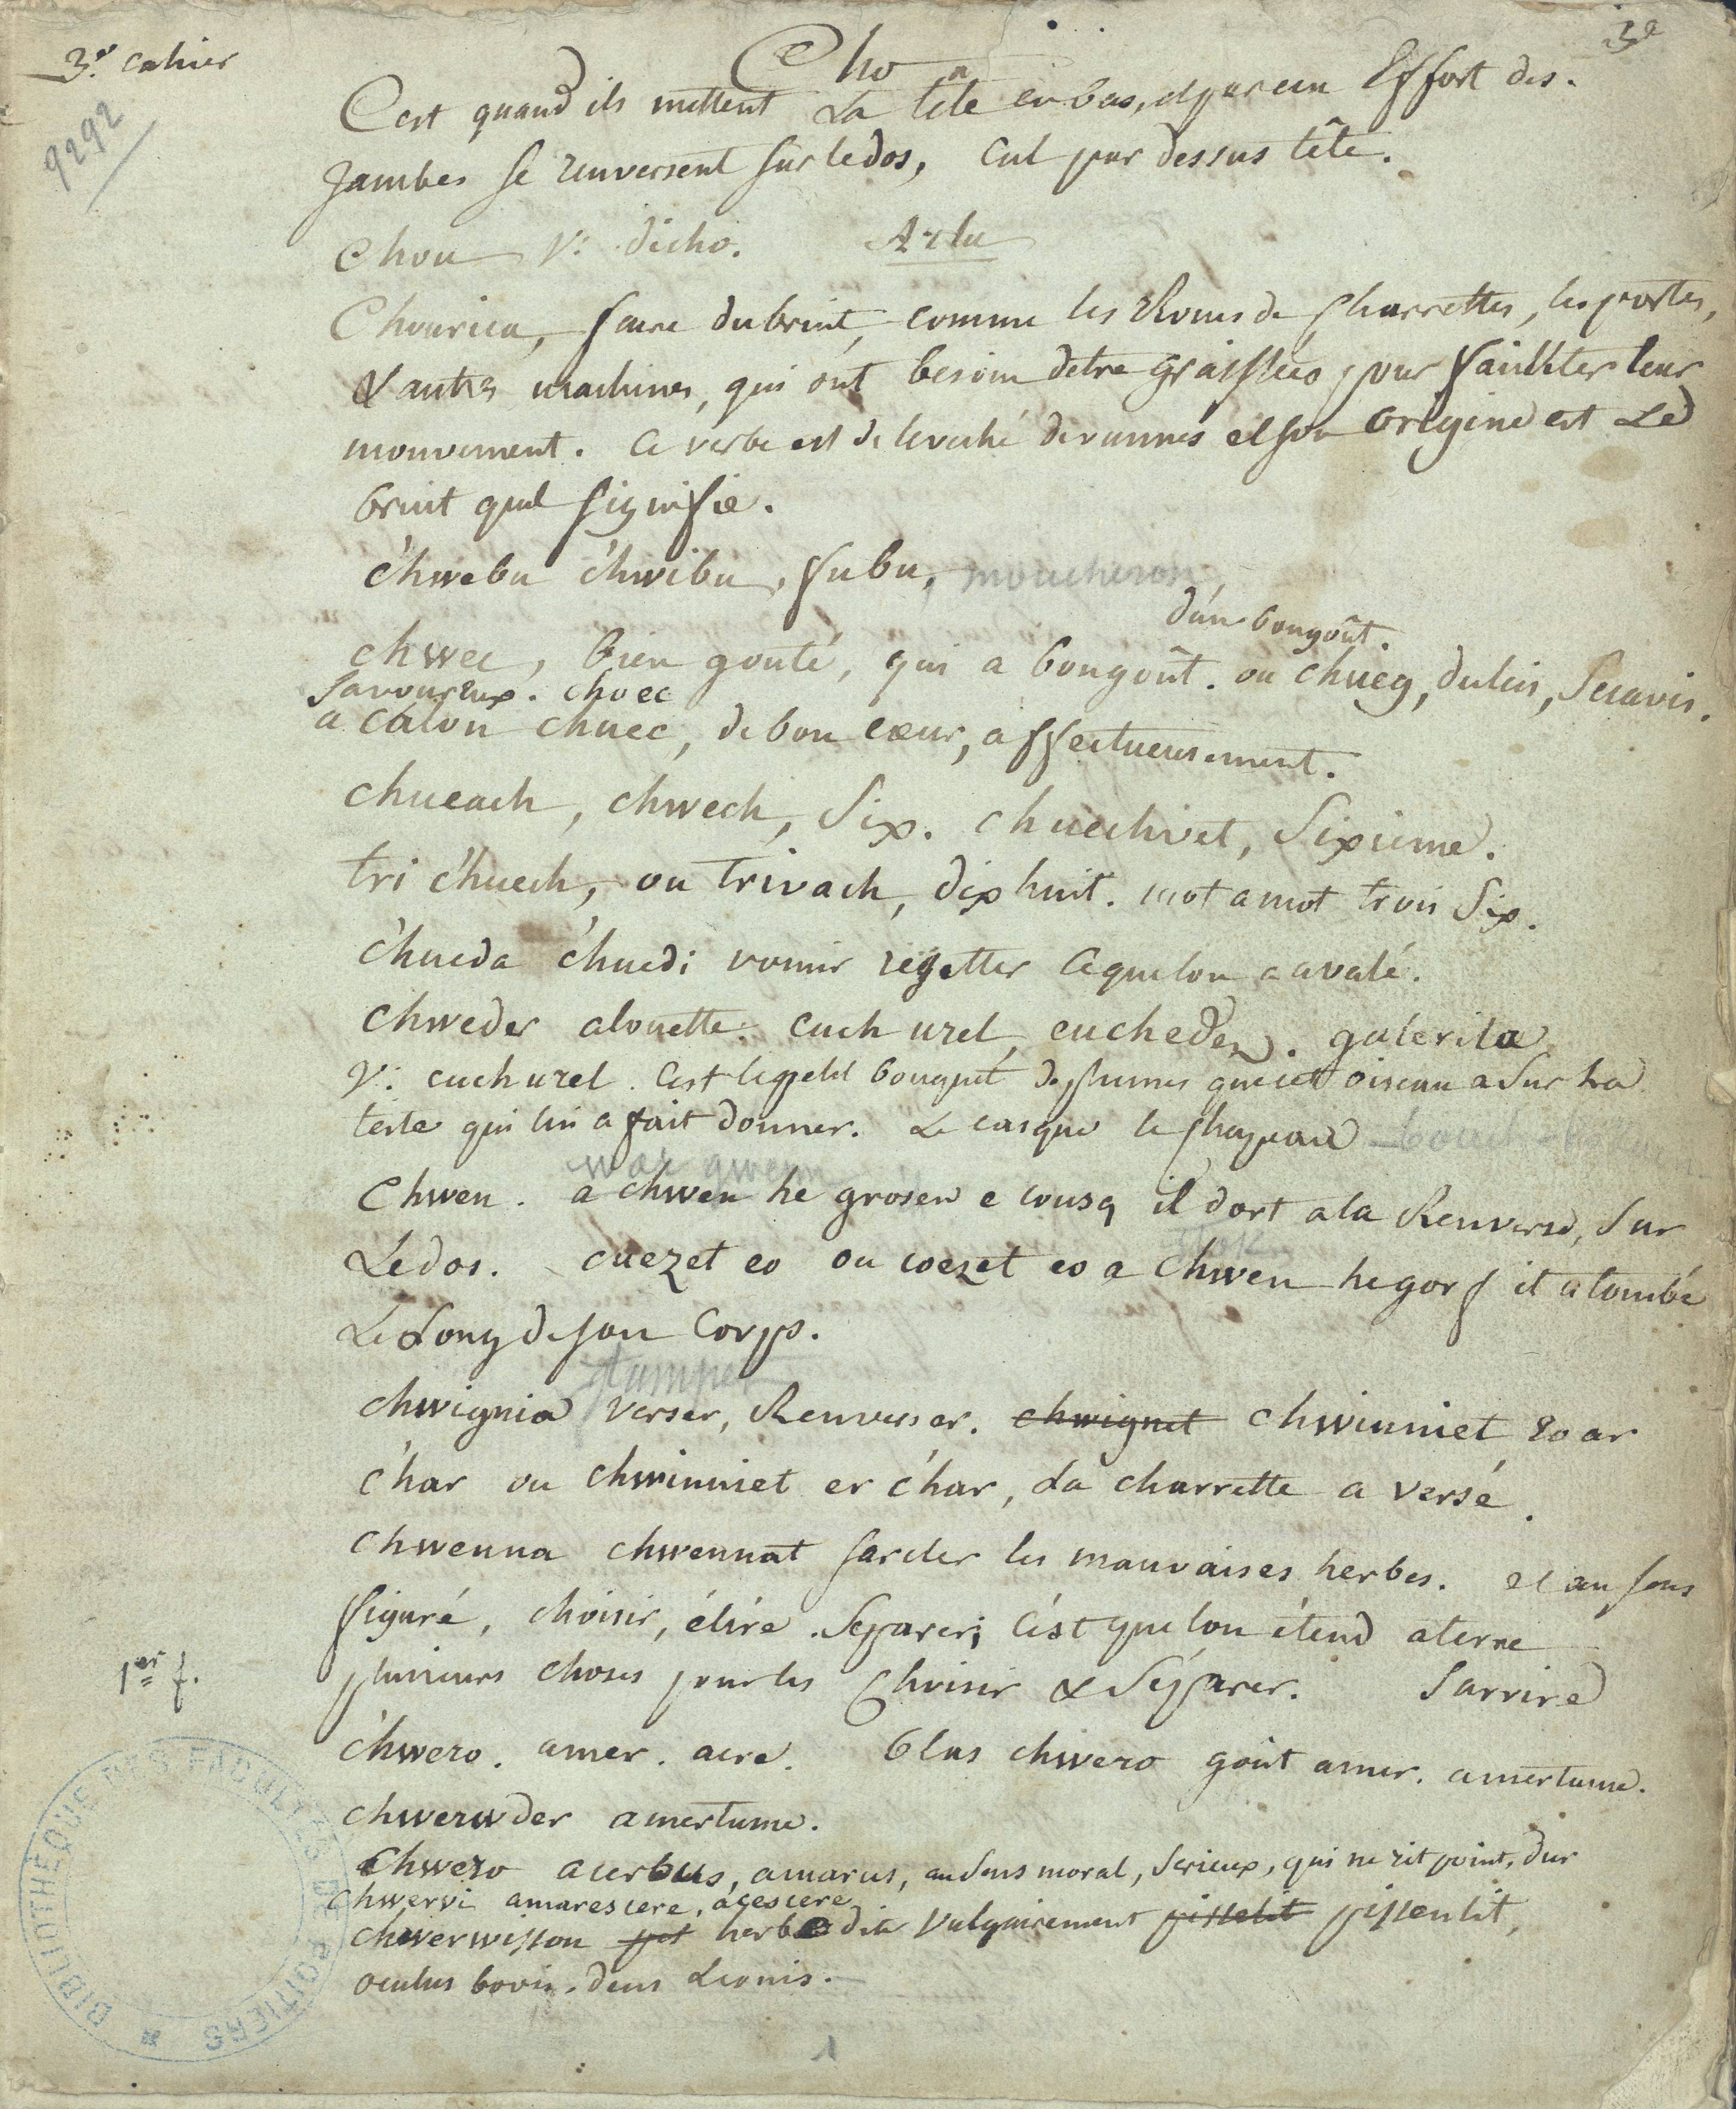 3e. cahier
9292
Cho
3e
C'est quand ils mettent La tête en bas, et par un Effort des.
Jambes se renversent sur le dos, cul par dessus tête.
Chou V: dicho.
Chouricu, faire du bruit, comme les Roues de Charrettes, les portes,
& autres machines, qui ont besoin detre graissées pour faciliter leur
mouvement. ce verbe est de leveché de vannes et son origine est Le
bruit quil signifie.
c'hwebu c'hwibu, fubu, moucheron
d'un bon goût.
chwec, bien gouté, qui a bon goût. ou chueg, dulcis, Suavis.
savoureux. choec
a calon chuec, de bon cœur, affectueusement.
chueach, chwech, Six. chuechvet, Sixieme.
tri c'huech, ou trivach, dix huit. mot a mot trois Six.
c'hueda c'huedi vomir regetter ce que lon a avalé.
chweder alouette. cuchurel, eucheder. galerita
V: cuchurel. C'est le petit bouquet de plumes que cet oiseau a Sur La
teste qui lui a fait donner. Le casque le chapeau
war gwenn
Chwen. a chwen he grosen e cousq il dort a la Renverse, Sur
Le dos. cuezet eo ou coezet eo a chwen he gorf il a tombé
Le Long de son Corps.
chwignia verser, Renverser. chwignet chwinniet eo ar
c'har ou chwinniet er c'har, La charrette a versé.
chwenna chwennat sarcler les mauvaises herbes. et au sens
figuré, choisir, élire. Separer; c'est que lon étend a terre
plusieurs choses pour les Choisir & Séparer. Sarrire
1er f.
c'hwero. amer. acre. blas chwero goût amer. amertume.
chwerwder amertume.
Chwero acerbus, amarus, au sens moral, Serieux, qui ne rit point, dur
chwervi amarescere, acescere
chwerwisson pis herbe dite Vulgairement pisselit pissenlit,
oculus bovis. dens Leonis.
BIBLIOTHEQUE DES FACULTÉS DE POITIERS
1